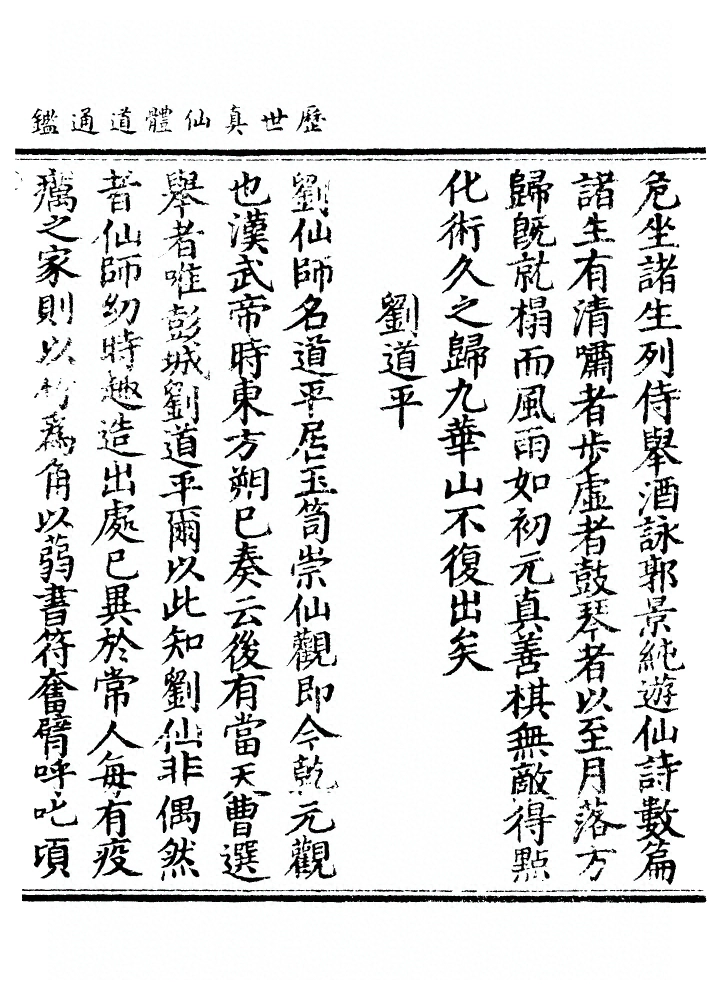 歷世真仙體道通鑑
危坐諸生列侍舉酒詠郭景純遊仙詩數篇
諸生有清嘯者步虛者鼓琴者以至月落方
歸既就榻而風雨如初元真善棋無敵得點
化術久之歸九華山不復出矣
劉道平
劉仙師名道平居玉笥崇仙觀即今乾元觀
也漢武帝時東方朔已奏云後有當天曹選
舉者唯彭城劉道平爾以此知劉仙非偶然
者仙師幼時趣造出處已異於常人每有疫
癘之家則以竹為角以蒻書符奮臂呼叱頃